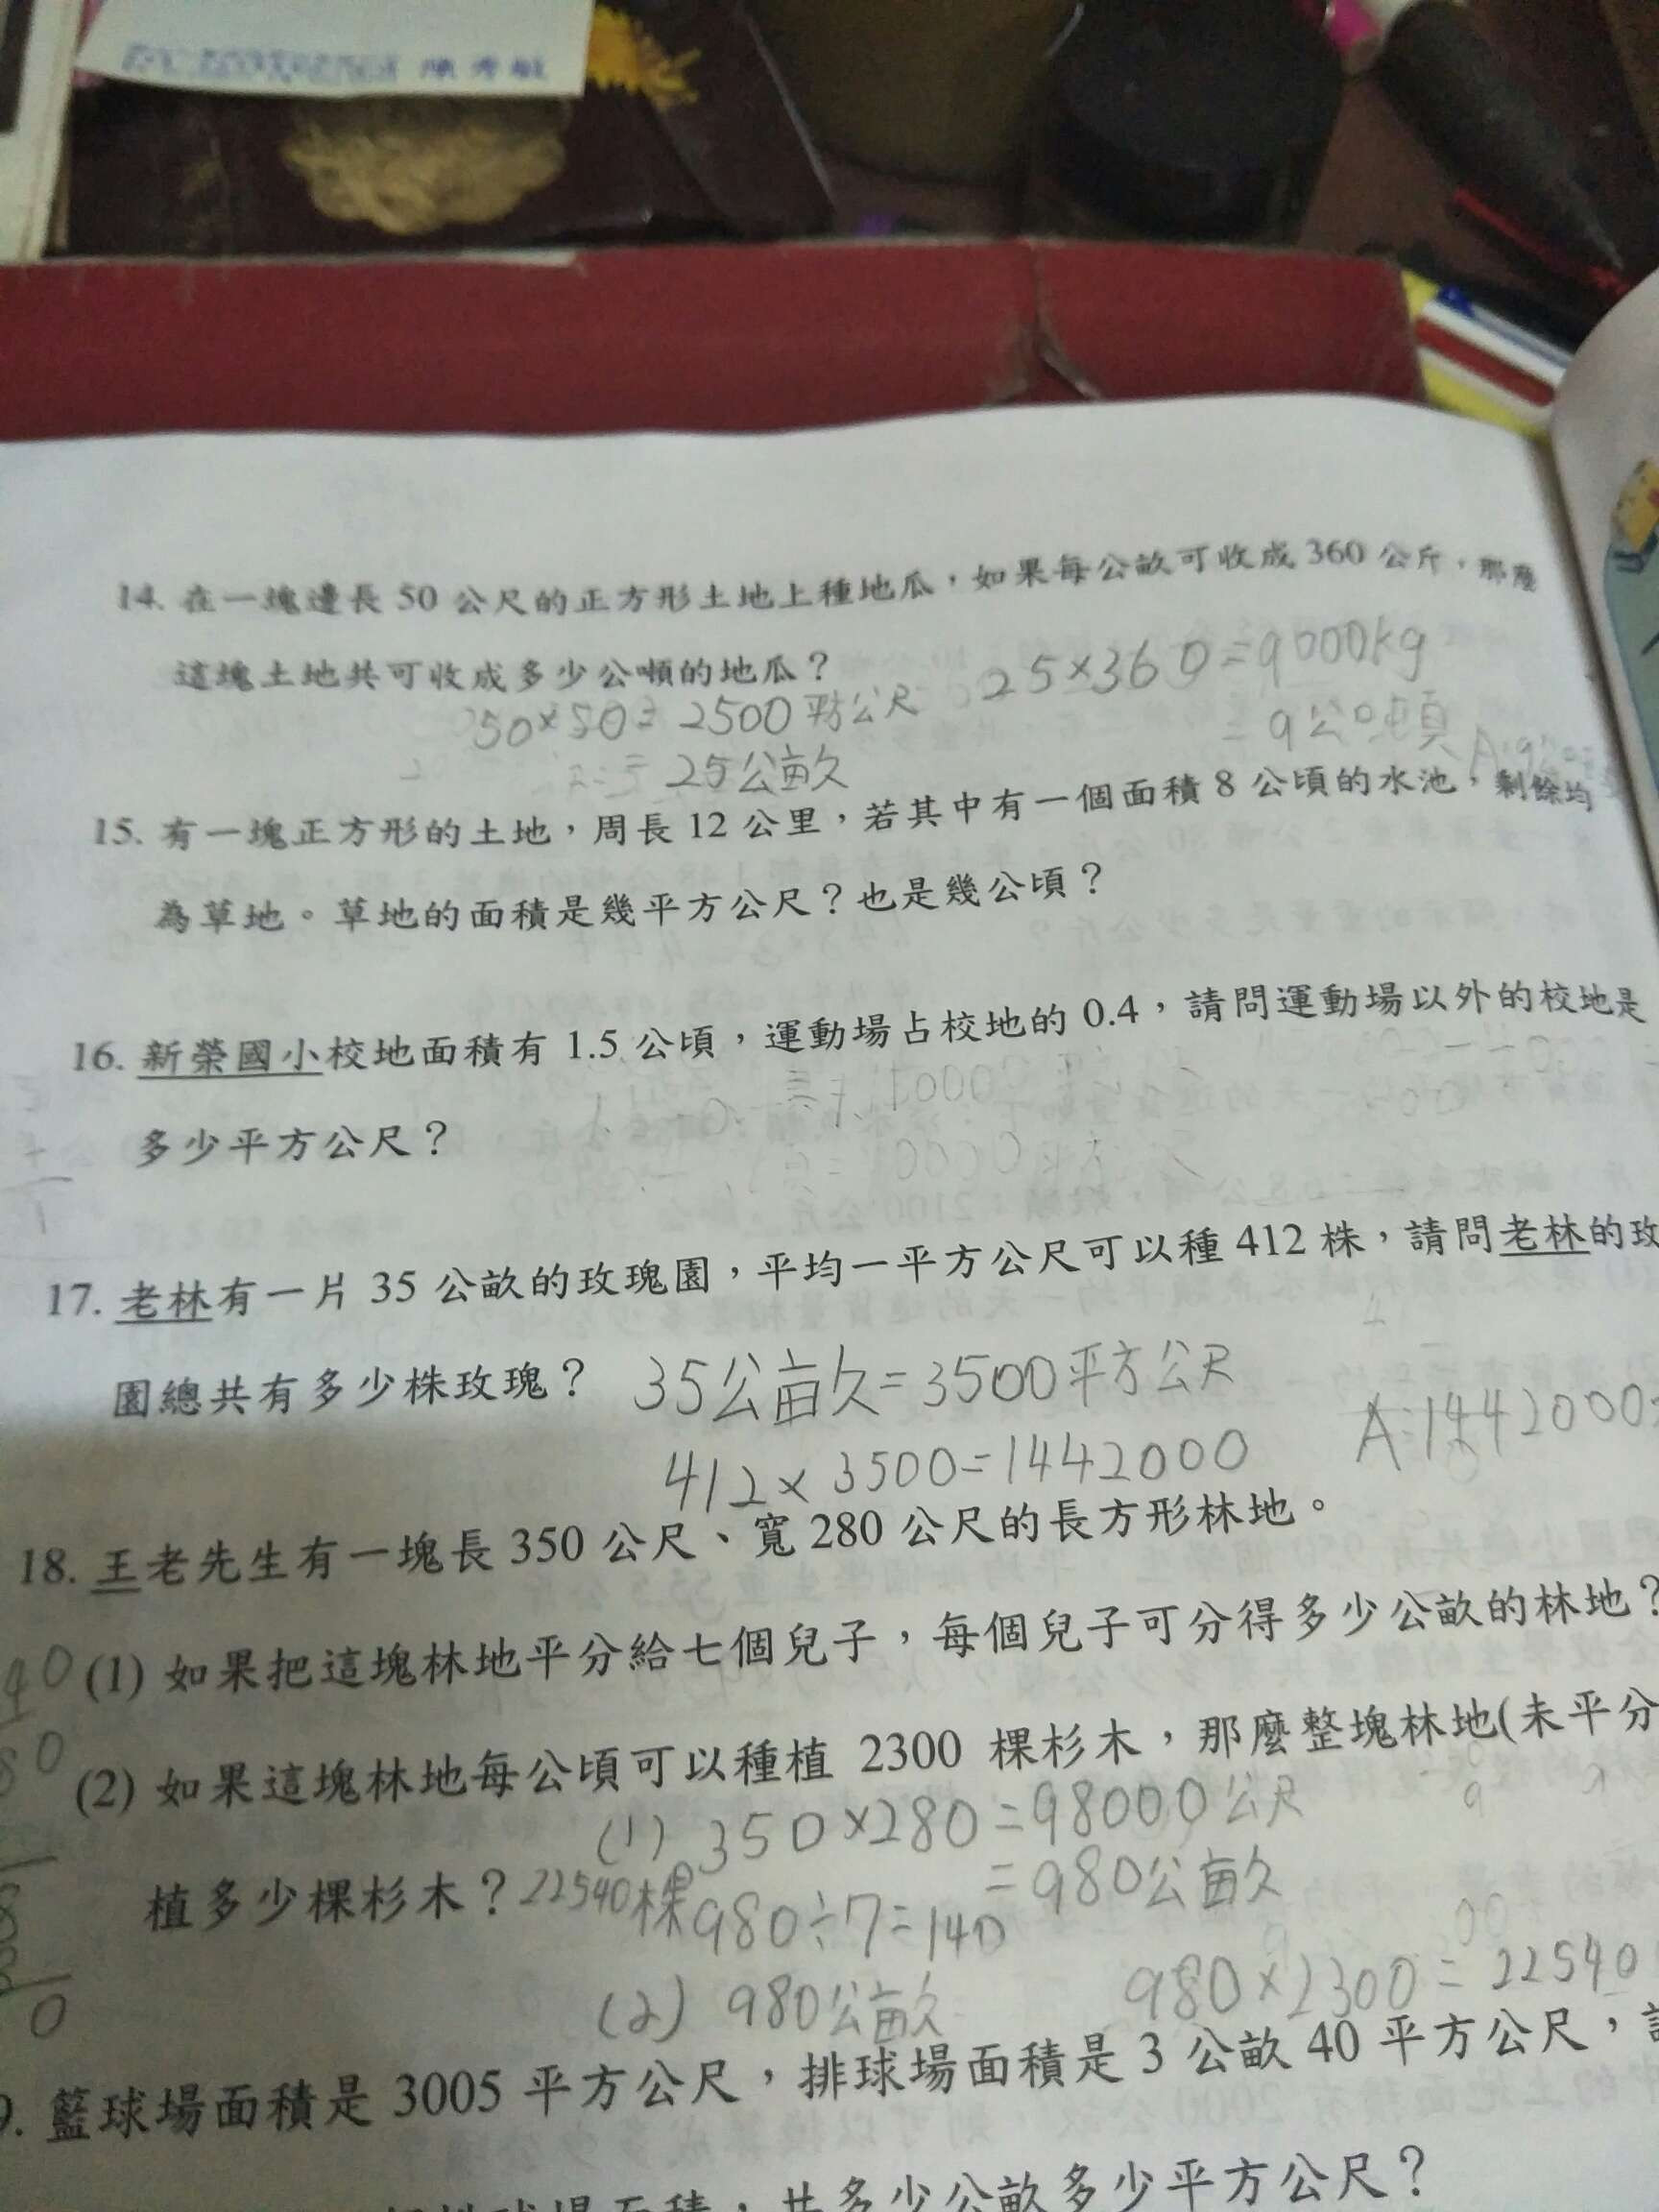 陳秀敏
14. 在一塊邊長 50 公尺的正方形土地上種地瓜，如果每公畝可收成 360 公斤，那麼
這塊土地共可收成多少公噸的地瓜？
25×360=9000kg
50×50= 2500 平方公尺
=9公噸
= 25公畝
15. 有一塊正方形的土地，周長 12 公里，若其中有一個面積 8 公頃的水池，剩餘均
為草地。草地的面積是幾平方公尺？也是幾公頃？
16. 新榮國小校地面積有 1.5 公頃，運動場占校地的 0.4，請問運動場以外的校地是
多少平方公尺？
17. 老林有一片 35 公畝的玫瑰園，平均一平方公尺可以種 412 株，請問老林的玫
園總共有多少株玫瑰？
35公畝=3500平方公尺
A:1442000
412×3500=1442000
18. 王老先生有一塊長 350 公尺、寬 280 公尺的長方形林地。
(1) 如果把這塊林地平分給七個兒子，每個兒子可分得多少公畝的林地？
(2) 如果這塊林地每公頃可以種植 2300 棵杉木，那麼整塊林地(未平分
(1) 350×280=98000公尺
植多少棵杉木？
22540棵
=980公畝
980÷7=140
(2) 980公畝
980×2300=22540
9. 籃球場面積是 3005 平方公尺，排球場面積是 3 公畝 40 平方公尺，
共多少公畝多少平方公尺？